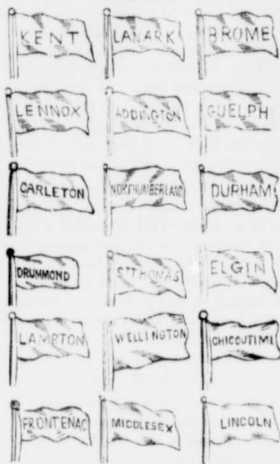 KENT LANARK BROME
LENNOX ADDINGTON GUELPH
CARLETON NORTHUMBERLAND DURHAM
DRUMMOND ST THOMAS ELGIN
LAMPTON WELLINGTON CHICOUTIMI
FRONTENAC MIDDLESEX LINCOLN